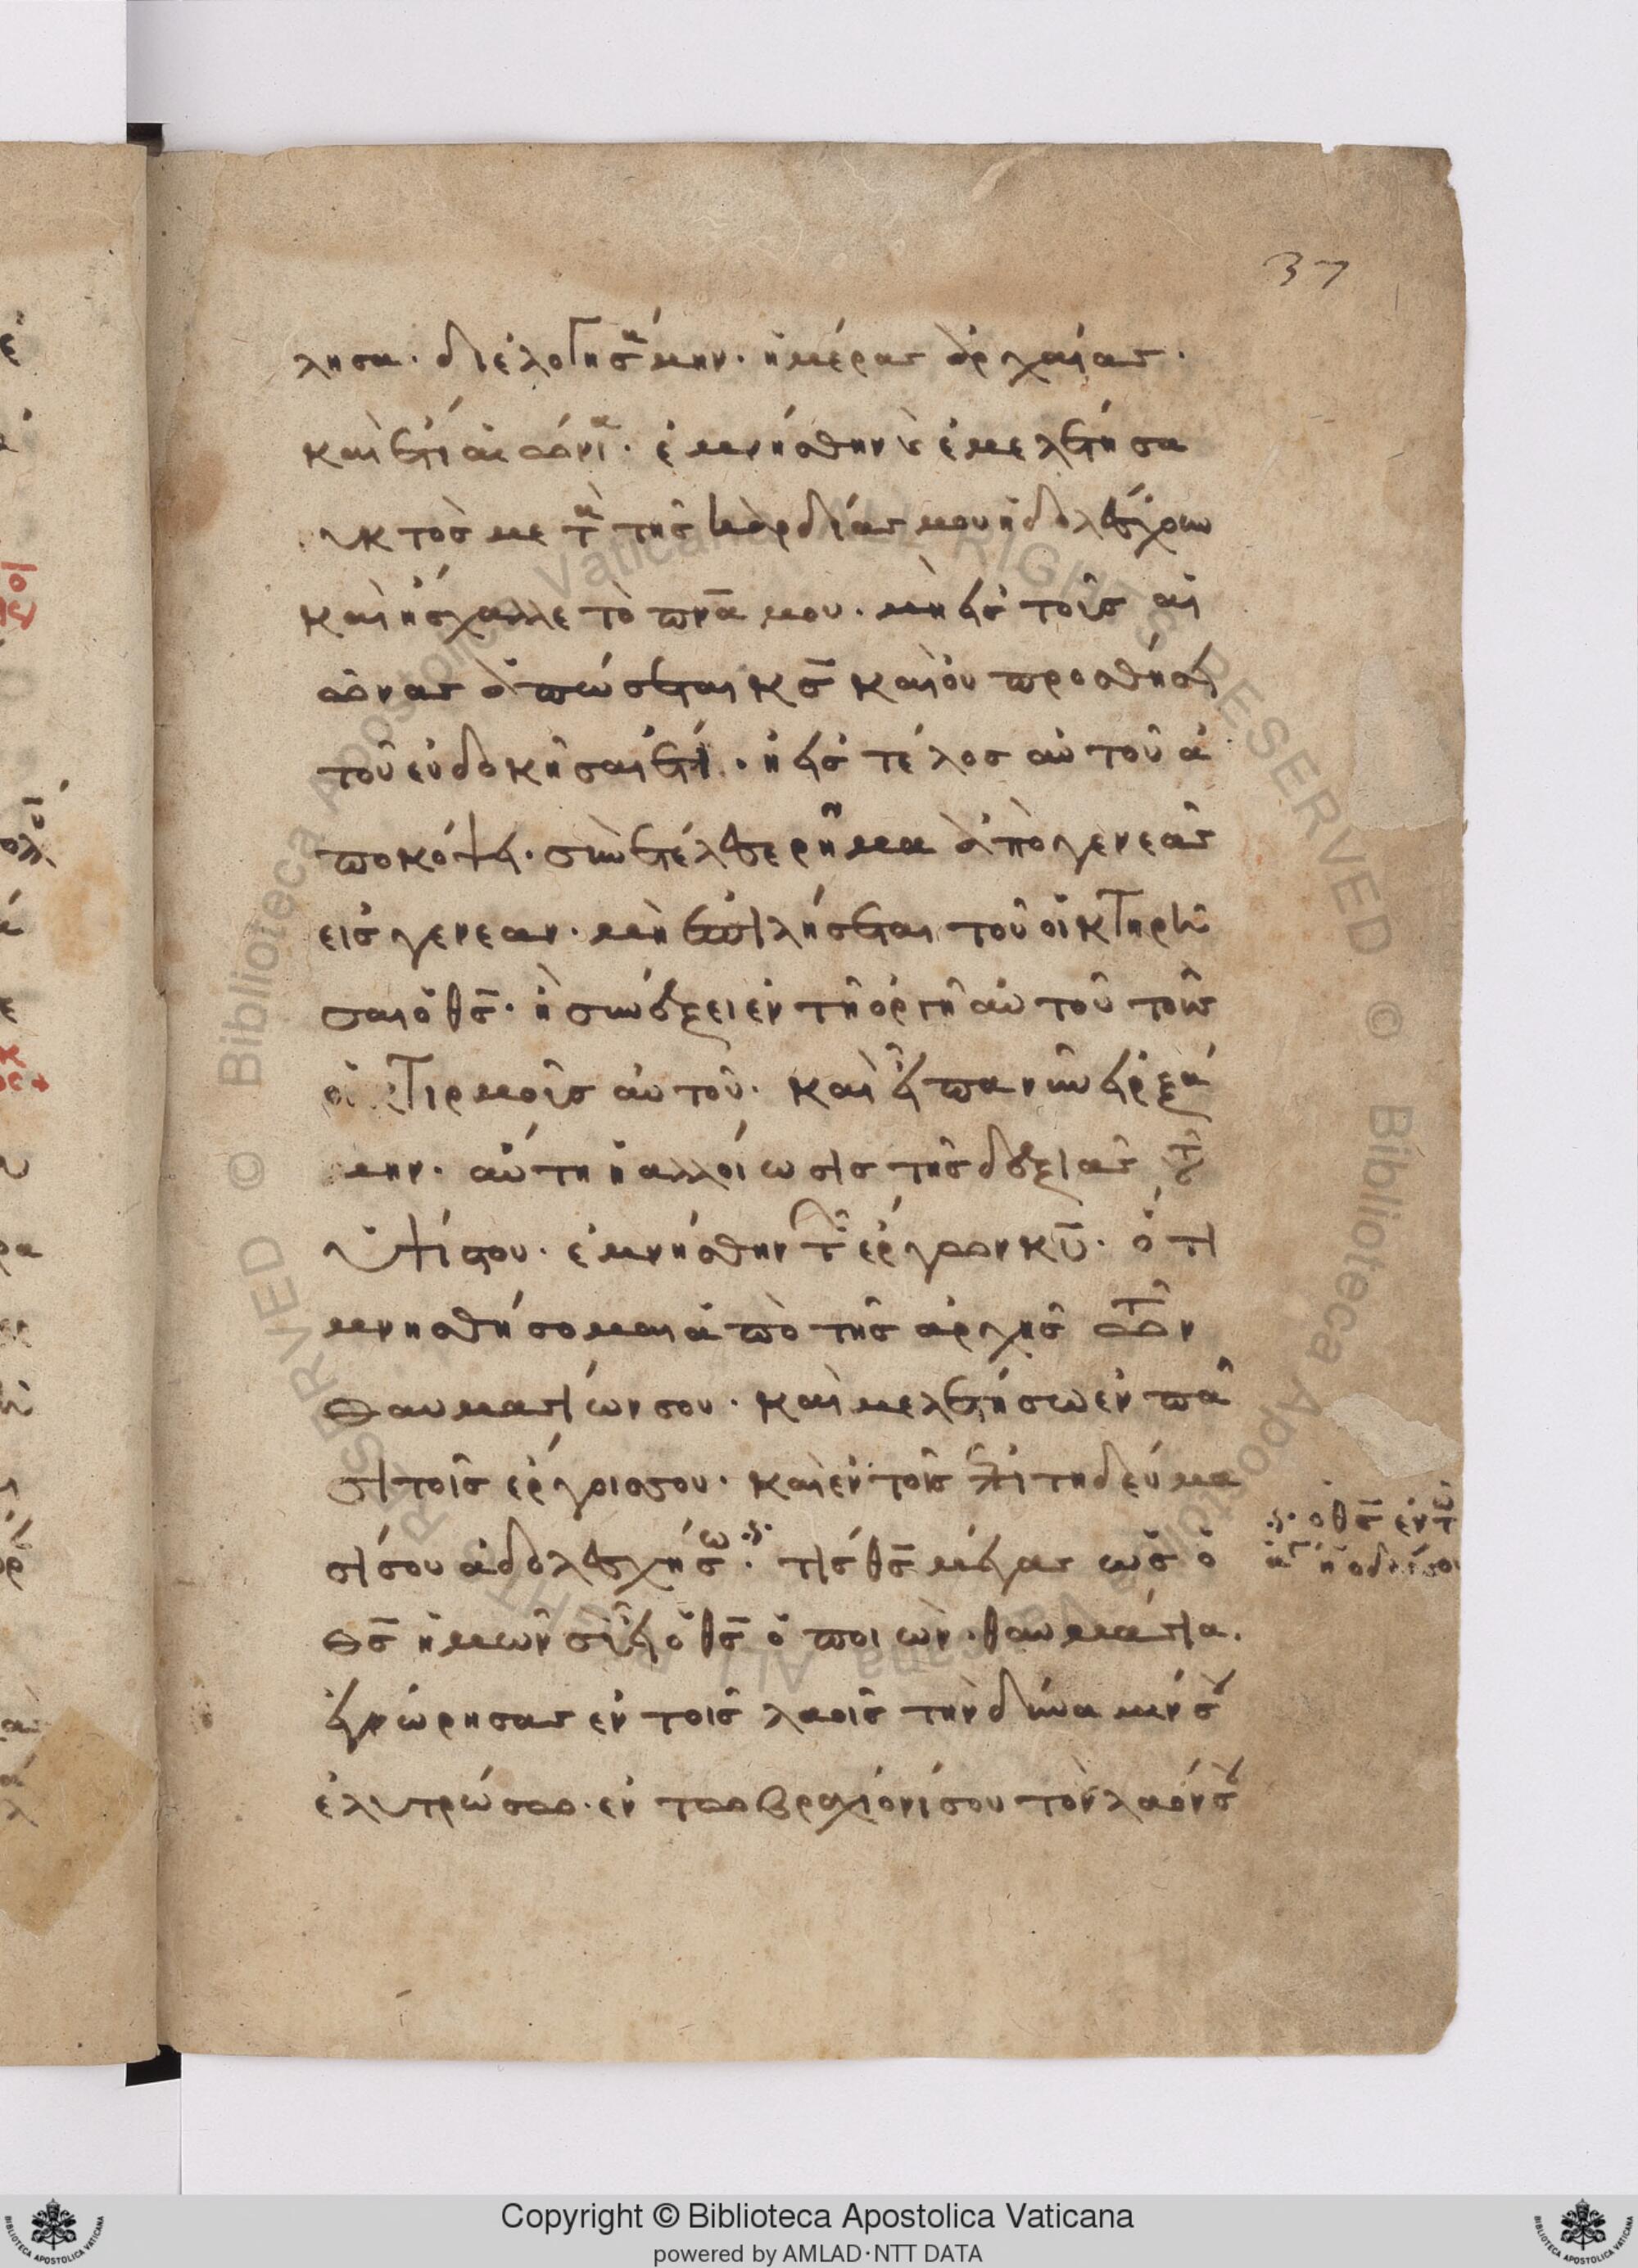 37
λησα· διελογησάμην· ἡμέρας ἀρχαίας·
καὶ ἔτι αἰώνια· ἐμνήσθην κ ἐμελέτησα
νυκτὸς μετὰ τῆς καρδίας μου ἠδολέσχουν
καὶ ἤσχαλλε τὸ πνα μου· μὴ εἰς τοὺς αἰ
ῶνας ἀπώσεται κς καὶ οὐ προσθήσει
τοῦ εὐδοκῆσαι ἔτι· ἢ εἰς τέλος αὐτοῦ ἀ
ποκόψει· συνετέλεσε ρῆμα ἀπὸ γενεᾶς
εἰς γενεαν· μὴ ἐπιλήσεται τοῦ οἰκτηρῆ
σαι ὁ θς· ἢ συνέξει ἐν τῆ ὀργῆ αὐτοῦ τοὺς
οἰκτιρμοὺς αὐτοῦ· καὶ εἶπα νῦν ἠρξά
μην· αὕτη ἡ ἀλλοίωσις τῆς δεξιᾶς τοῦ
ὑψίστου· ἐμνήσθην τῶν ἔργων κυ· ὅτι
μνησθήσομαι ἀπὸ τῆς ἀρχῆς τῶν
θαυμασίων σου· καὶ μελετήσω ἐν πᾶ
σι τοῖς ἔργοις σου· καὶ ἐν τοῖς ἐπιτηδεύμα
σί σου ἀδολεσχήσω· τίς θς μέγας ὡς ὁ
·/· ὁ θς ἐν τῶ
ἁγ ἡ ὁδός σου
θς ἡμῶν σὺ εἶ ὁ θς ὁ ποιων· θαυμάσια.
ἐγνώρησας ἐν τοῖς λαοῖς τὴν δύναμίν σου
ἐλυτρώσω· ἐν τῶ βραχίονί σου τὸν λαόν σου
Copyright © Biblioteca Apostolica Vaticana
powered by AMLAD·NTT DATA